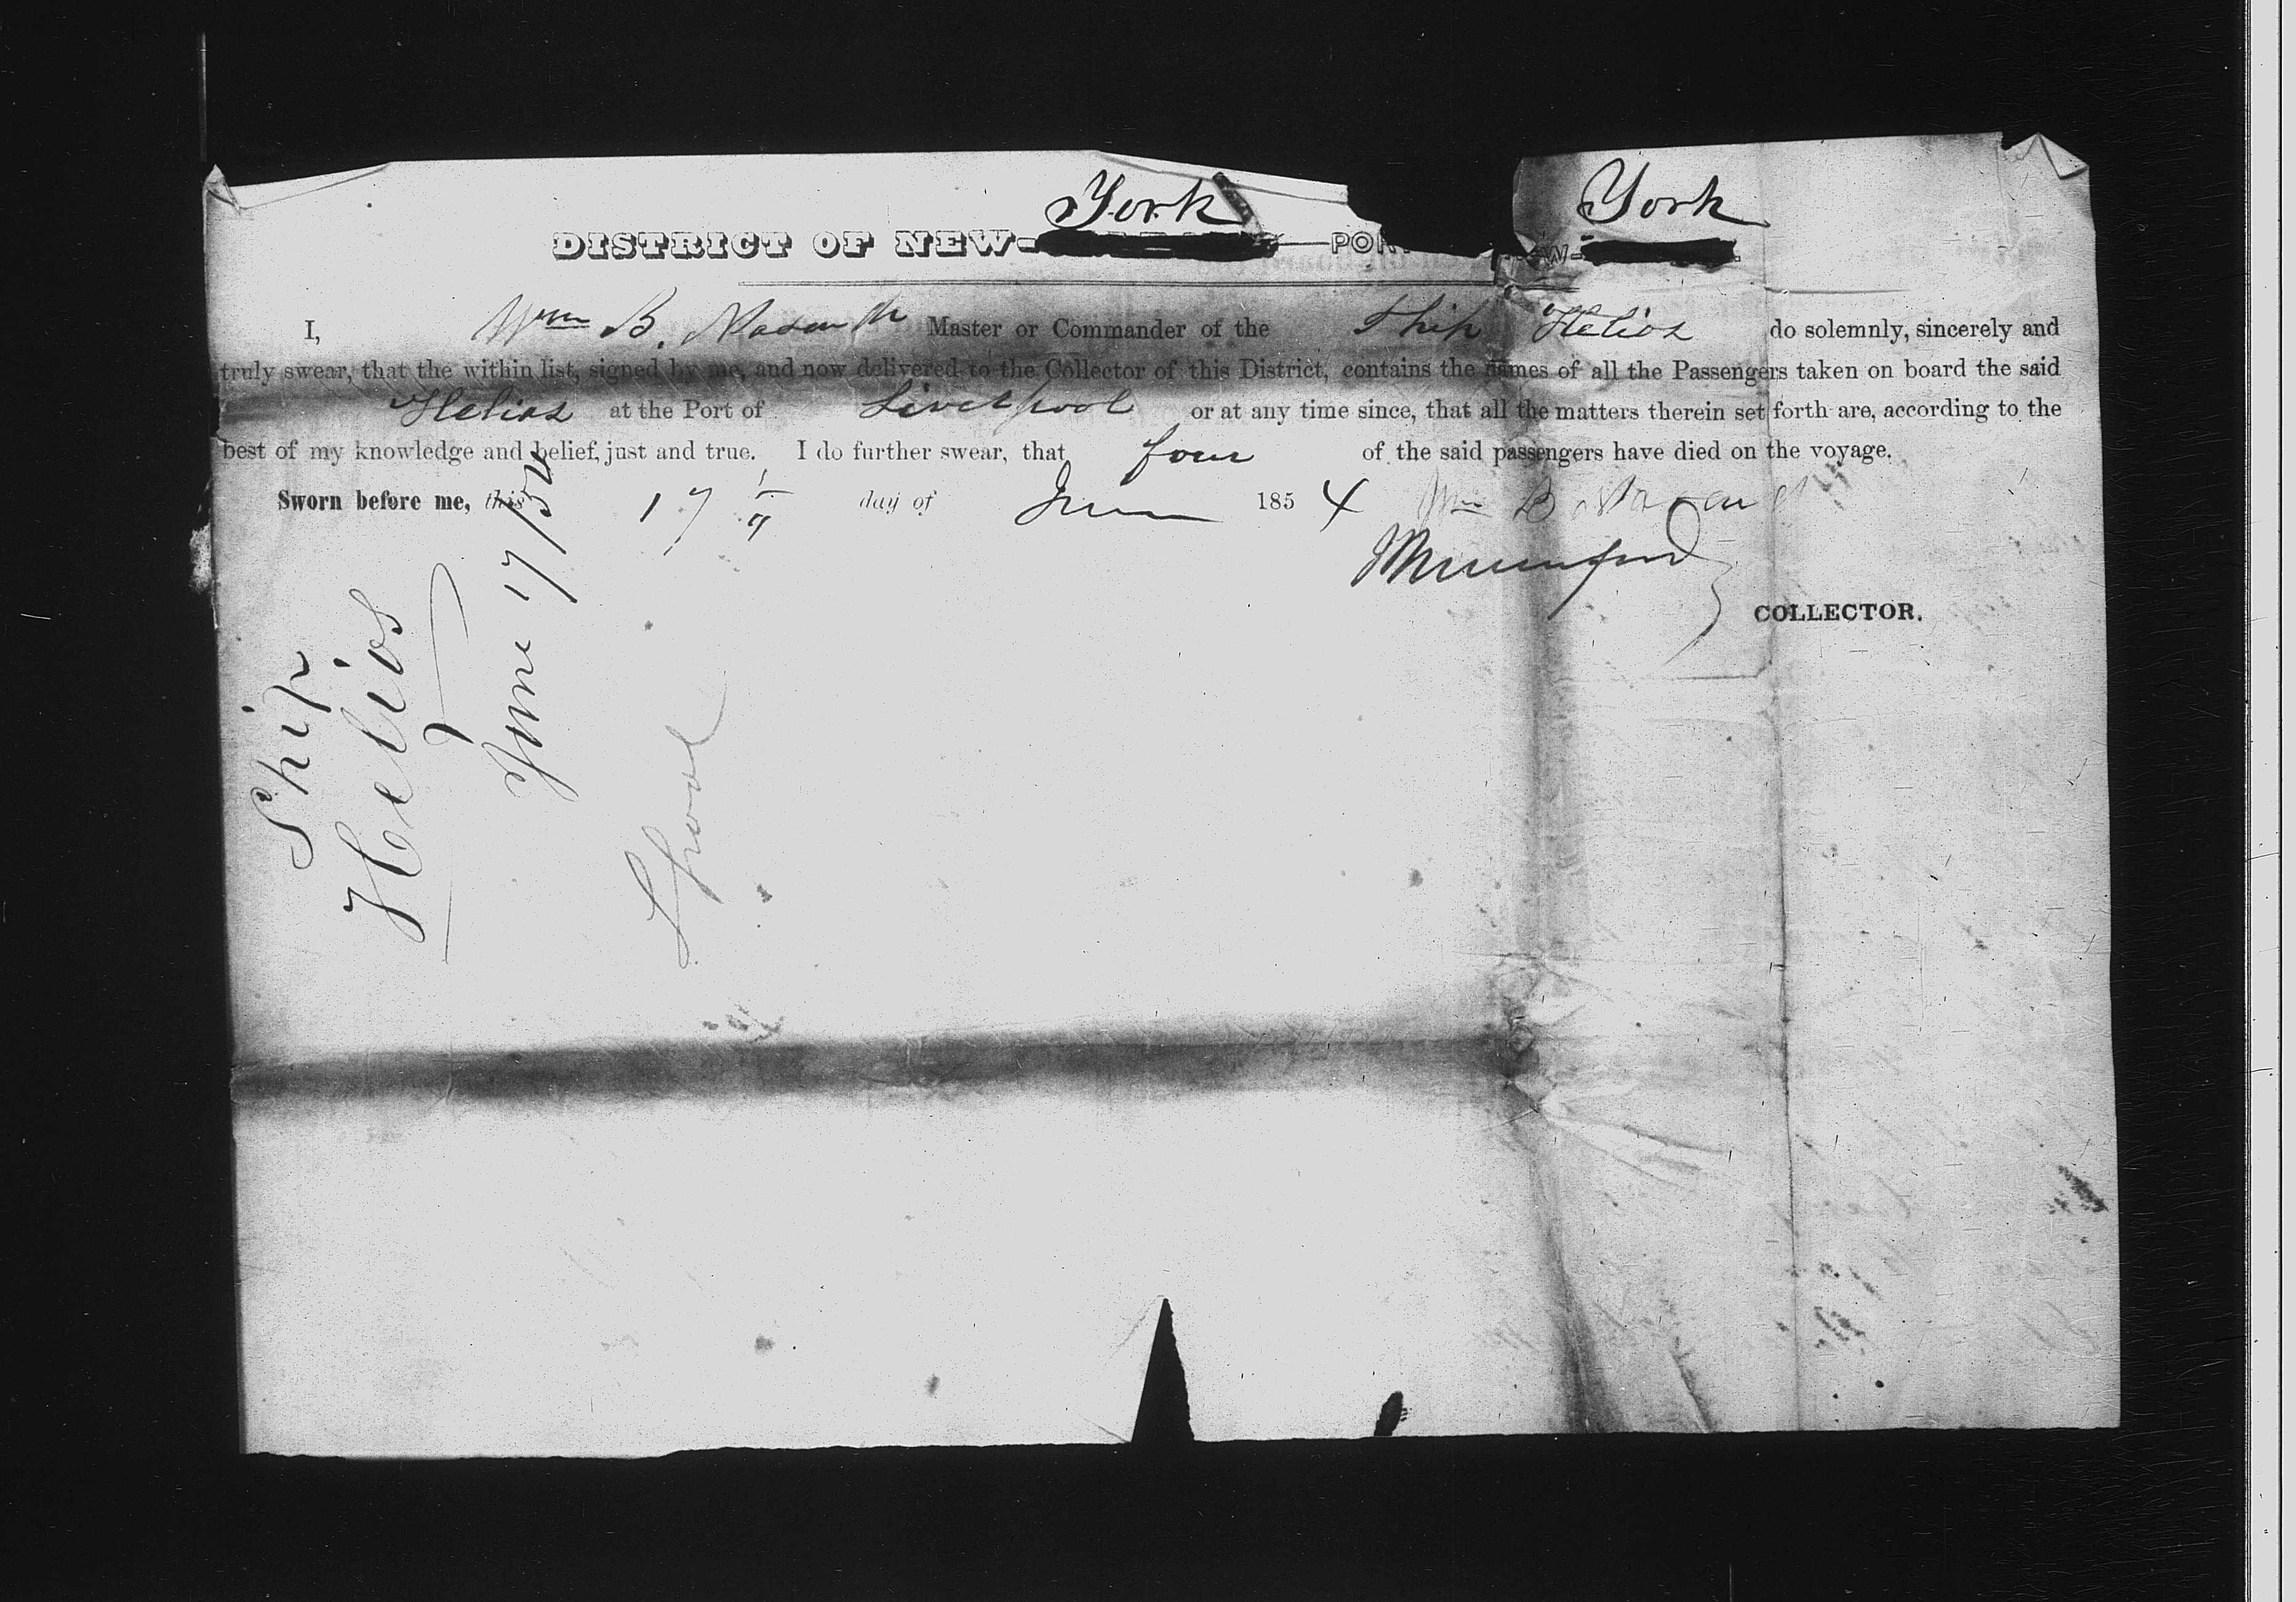 York York
DISTRICT OF NEW- — POR W-
I, Wm B. Master or Commander of the Ship Helios do solemnly, sincerely and
truly swear, that the within list, signed by me, and now delivered to the Collector of this District, contains the names of all the Passengers taken on board the said
Helios at the Port of Liverpool or at any time since, that all the matters therein set forth are, according to the
best of my knowledge and belief, just and true. I do further swear, that four of the said passengers have died on the voyage.
Sworn before me, this 17 day of June 1854 Wm B
COLLECTOR.
Ship
Helios
June 17/54
Lpool